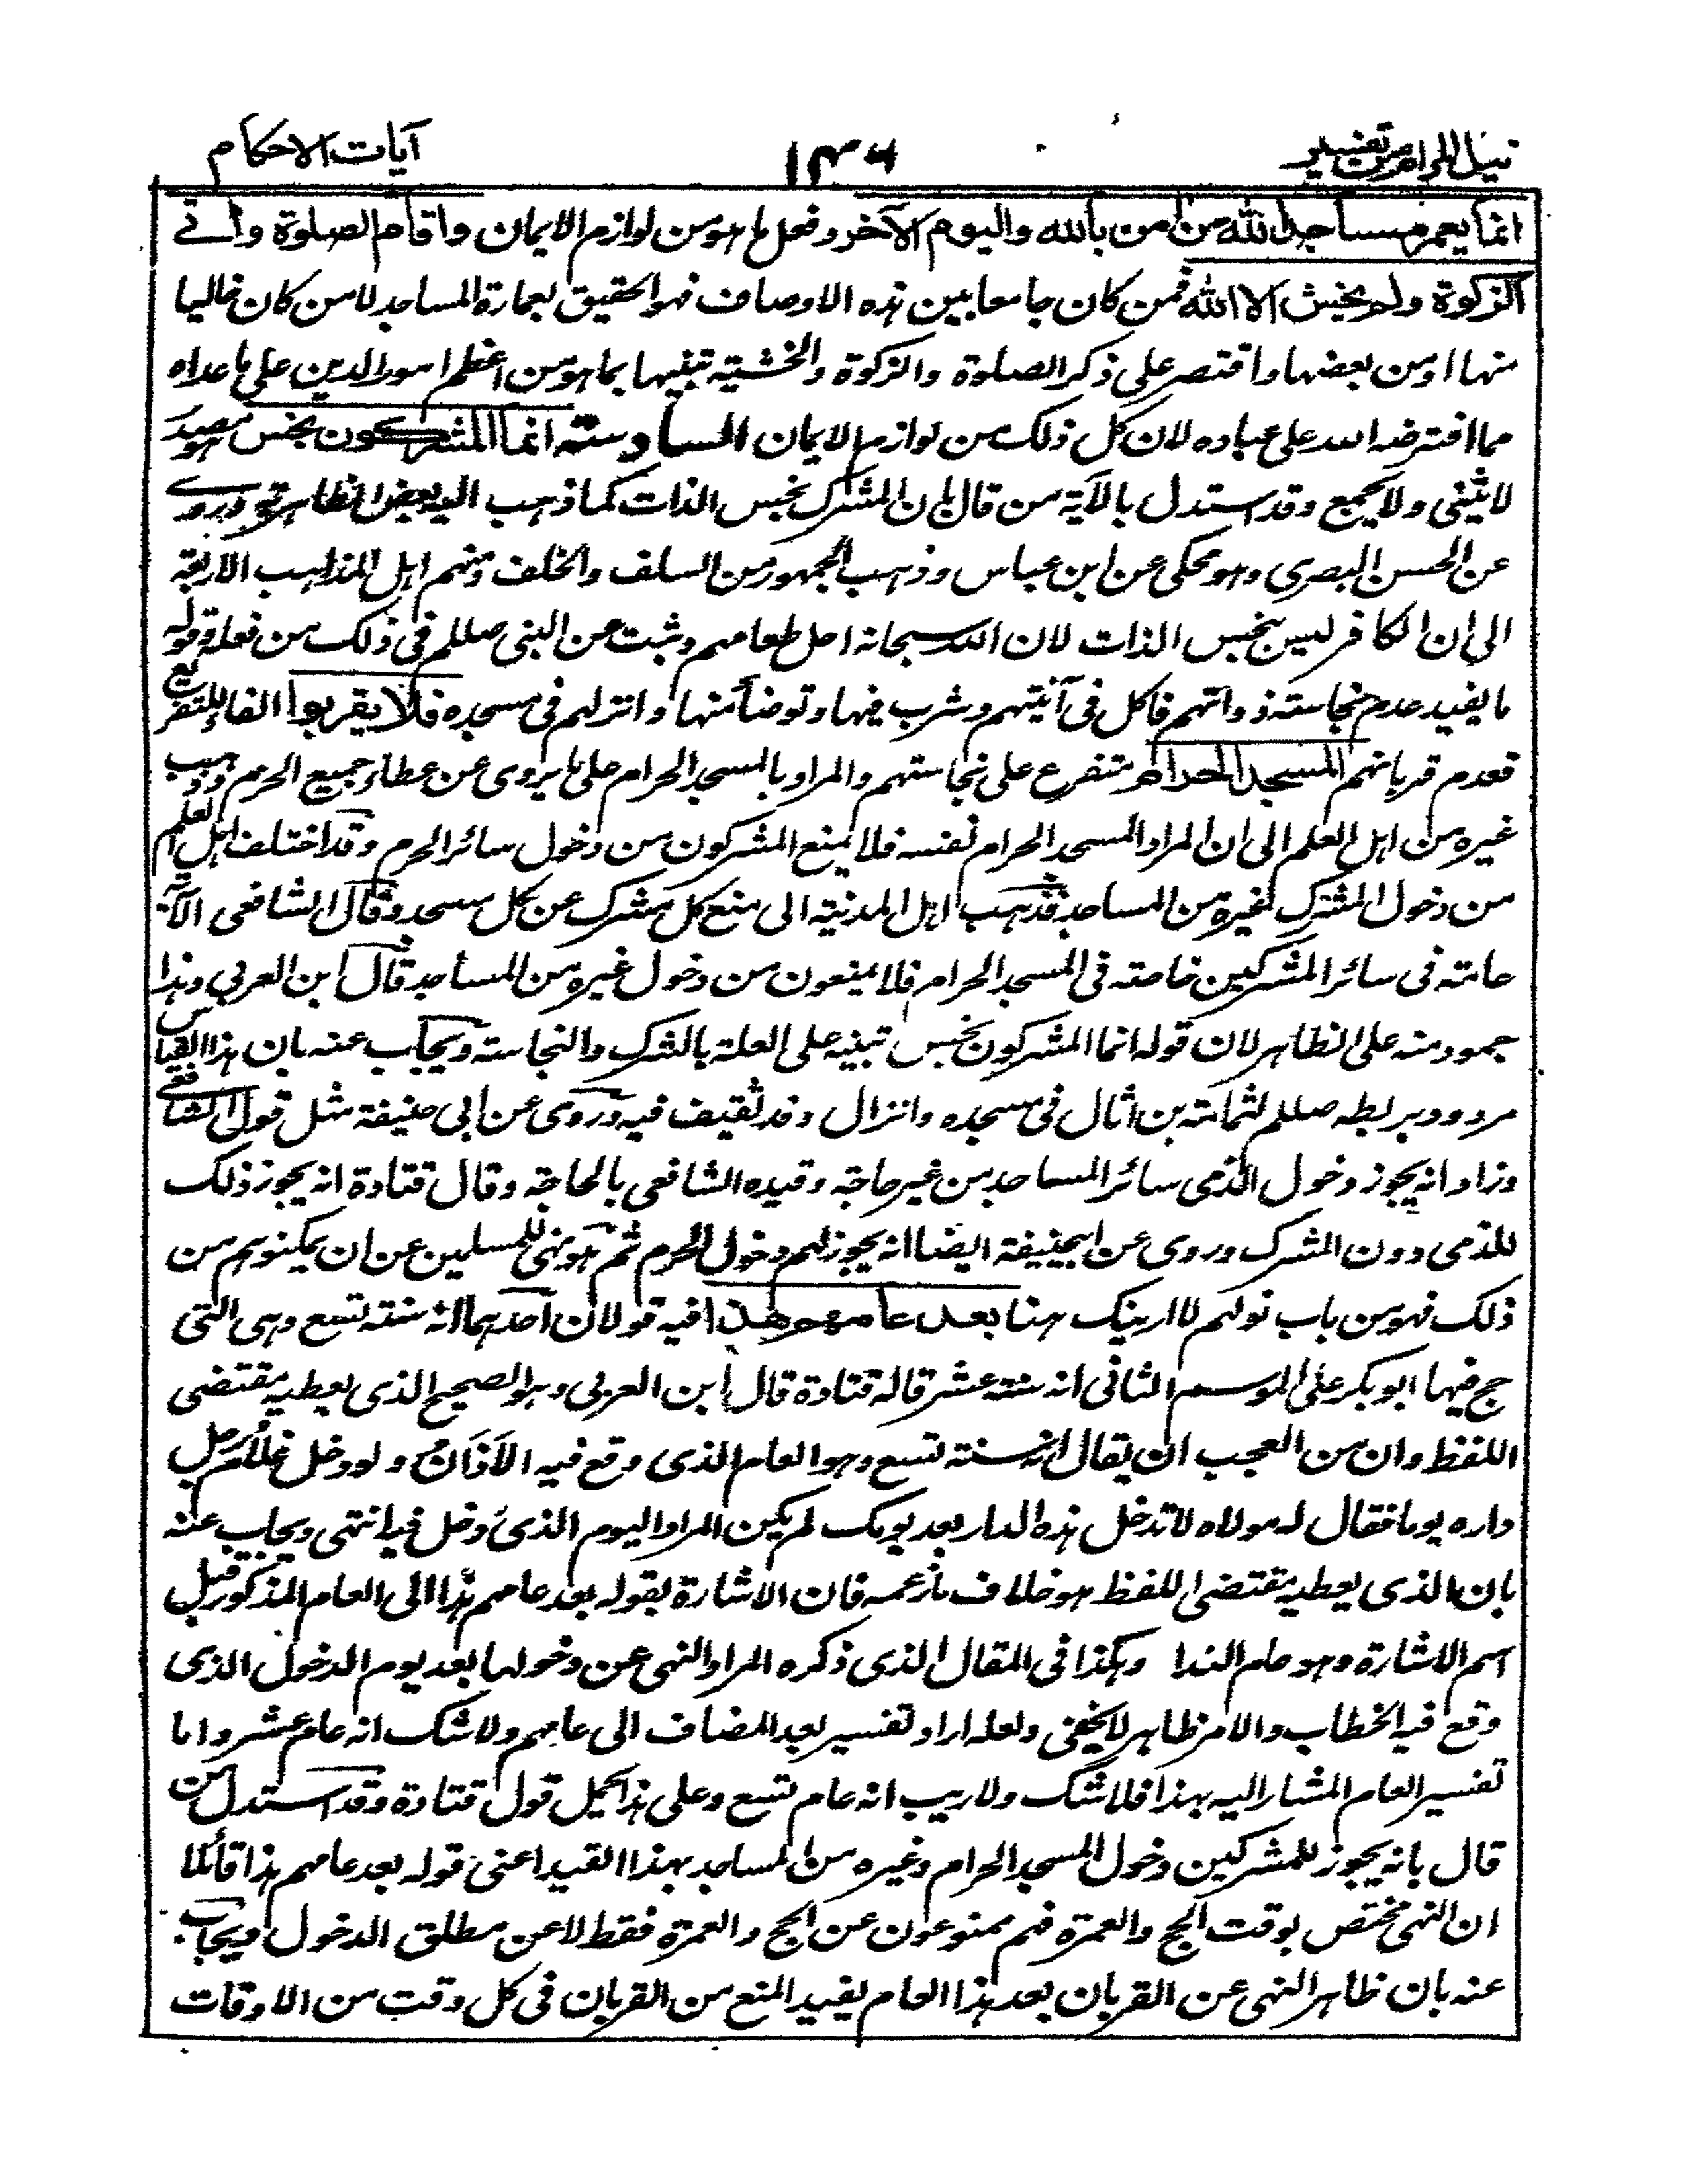 نيل المرام من تفسير ١٣٦ آيات الاحكام
انما يعمر مساجد الله من امن بالله واليوم الآخر وفعل ما هو من لوازم الايمان واقام الصلوة واتى
الزكوة ولم يخش الا الله فمن كان جامعا بين هذه الاوصاف فهو الحقيق بعمارة المساجد لا من كان خاليا
منها او من بعضها واقتصر على ذكر الصلوة والزكوة والخشية تنبيها بما هو من اعظم امور الدين على ما عداه
مما افترضه الله على عباده لان كل ذلك من لوازم الايمان السادسة انما المشركون نجس هو مصدر
لا يثنى ولا يجمع وقد استدل بالآية من قال بان المشرك نجس الذات كما ذهب اليه بعض الظاهرية وروى
عن الحسن البصرى وهو محكى عن ابن عباس وذهب الجمهور من السلف والخلف ومنهم اهل المذاهب الاربعة
الى ان الكافر ليس بنجس الذات لان الله سبحانه احل طعامهم وثبت عن النبى صللم فى ذلك من فعله وقوله
ما يفيد عدم نجاسة ذواتهم فاكل فى آنيتهم وشرب فيها وتوضأ منها وانزلهم فى مسجده فلا يقربوا الفاء للتفريع
فعدم قربانهم المسجد الحرام متفرع على نجاستهم والمراد بالمسجد الحرام على ما يروى عن عطاء جميع الحرم وذهب
غيره من اهل العلم الى ان المراد المسجد الحرام نفسه فلا يمنع المشركون من دخول سائر الحرم وقد اختلف اهل العلم
من دخول المشرك لغيره من المساجد فذهب اهل المدينة الى منع كل مشرك عن كل مسجد وقال الشافعى الآية
عامة فى سائر المشركين خاصة فى المسجد الحرام فلا يمنعون من دخول غيره من المساجد قال ابن العربى وهذا
جمود منه على الظاهر لان قوله انما المشركون نجس تنبيه على العلة بالشرك والنجاسة ويجاب عنه بان هذا القياس
مردود بربطه صللم لثمامة بن اثال فى مسجده وانزال وفد ثقيف فيه وروى عن ابى حنيفة مثل قول الشافعى
وزاد انه يجوز دخول الذمى سائر المساجد من غير حاجة وقيده الشافعى بالحاجة وقال قتادة انه يجوز ذلك
للذمى دون المشرك وروى عن ابيحنيفة ايضا انه يجوز لهم دخول الحرم ثم هو نهى للمسلمين عن ان يمكنوهم من
ذلك فهو من باب قولهم لا ارينك ههنا بعد عامهم هذا فيه قولان احدهما انه سنة تسع وهى التى
حج فيها ابو بكر على الموسم الثانى انه سنة عشر قاله قتادة قال ابن العربى وهو الصحيح الذى يعطيه مقتضى
اللفظ وان من العجب ان يقال انه سنة تسع وهو العام الذى وقع فيه الاذان ولو دخل غلام رجل
داره يوما فقال له مولاه لا تدخل هذه الدار بعد يومك لم يكن المراد اليوم الذى دخل فيه انتهى ويجاب عنه
بان الذى يعطيه مقتضى اللفظ هو خلاف ما زعمه فان الاشارة بقوله بعد عامهم هذا الى العام المذكور قبل
اسم الاشارة وهو عام الندا وهكذا فى المقال الذى ذكره المراد النهى عن دخولها بعد يوم الدخول الذى
وقع فيه الخطاب والامر ظاهر لا يخفى ولعله اراد تفسير بعد المضاف الى عامهم ولا شك انه عام عشر واما
تفسير العام المشار اليه بهذا فلا شك ولا ريب انه عام تسع وعلى هذا يحمل قول قتادة وقد استدل من
قال بانه يجوز للمشركين دخول المسجد الحرام وغيره من المساجد بهذا القيد اعنى قوله بعد عامهم هذا قائلا
ان النهى مختص بوقت الحج والعمرة فهم ممنوعون عن الحج والعمرة فقط لا عن مطلق الدخول ويجاب
عنه بان ظاهر النهى عن القربان بعد هذا العام يفيد المنع من القربان فى كل وقت من الاوقات